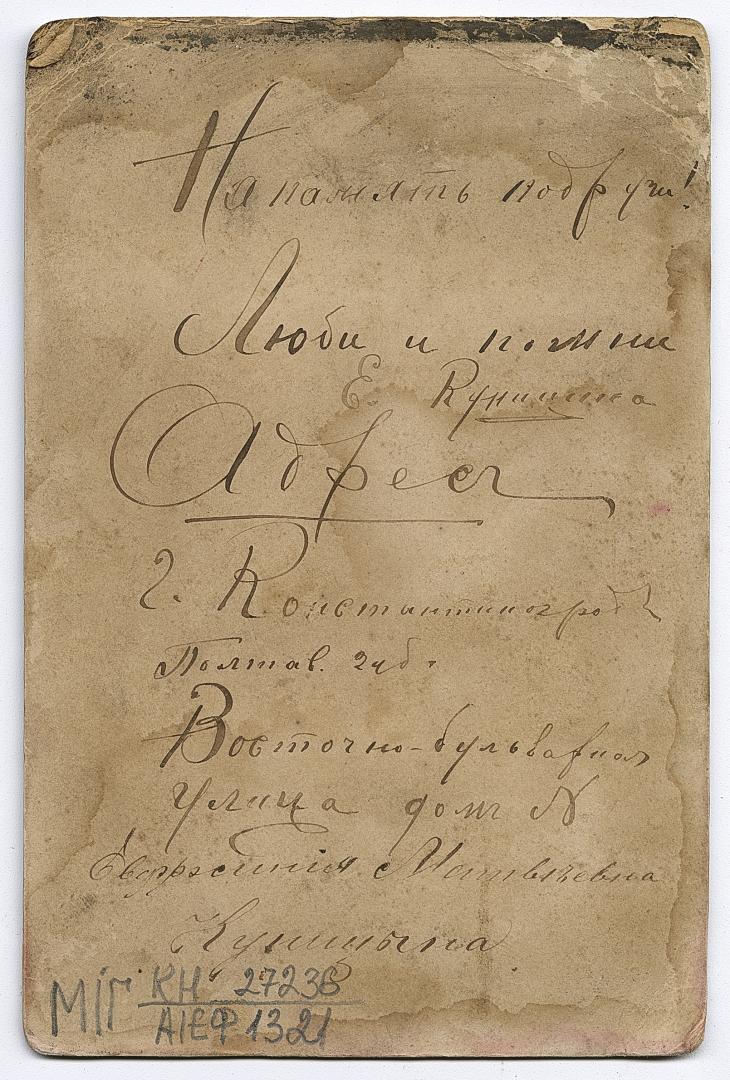 На память подруги!
Люби и помни
Е. Куницина
Адресъ
г. Константиноградъ
Полтав. губ.
Восточно-бульварная
улица домъ №
Евфросинія Матвѣевна
Куницына
МІГ КН 27236
АІЕФ 1321